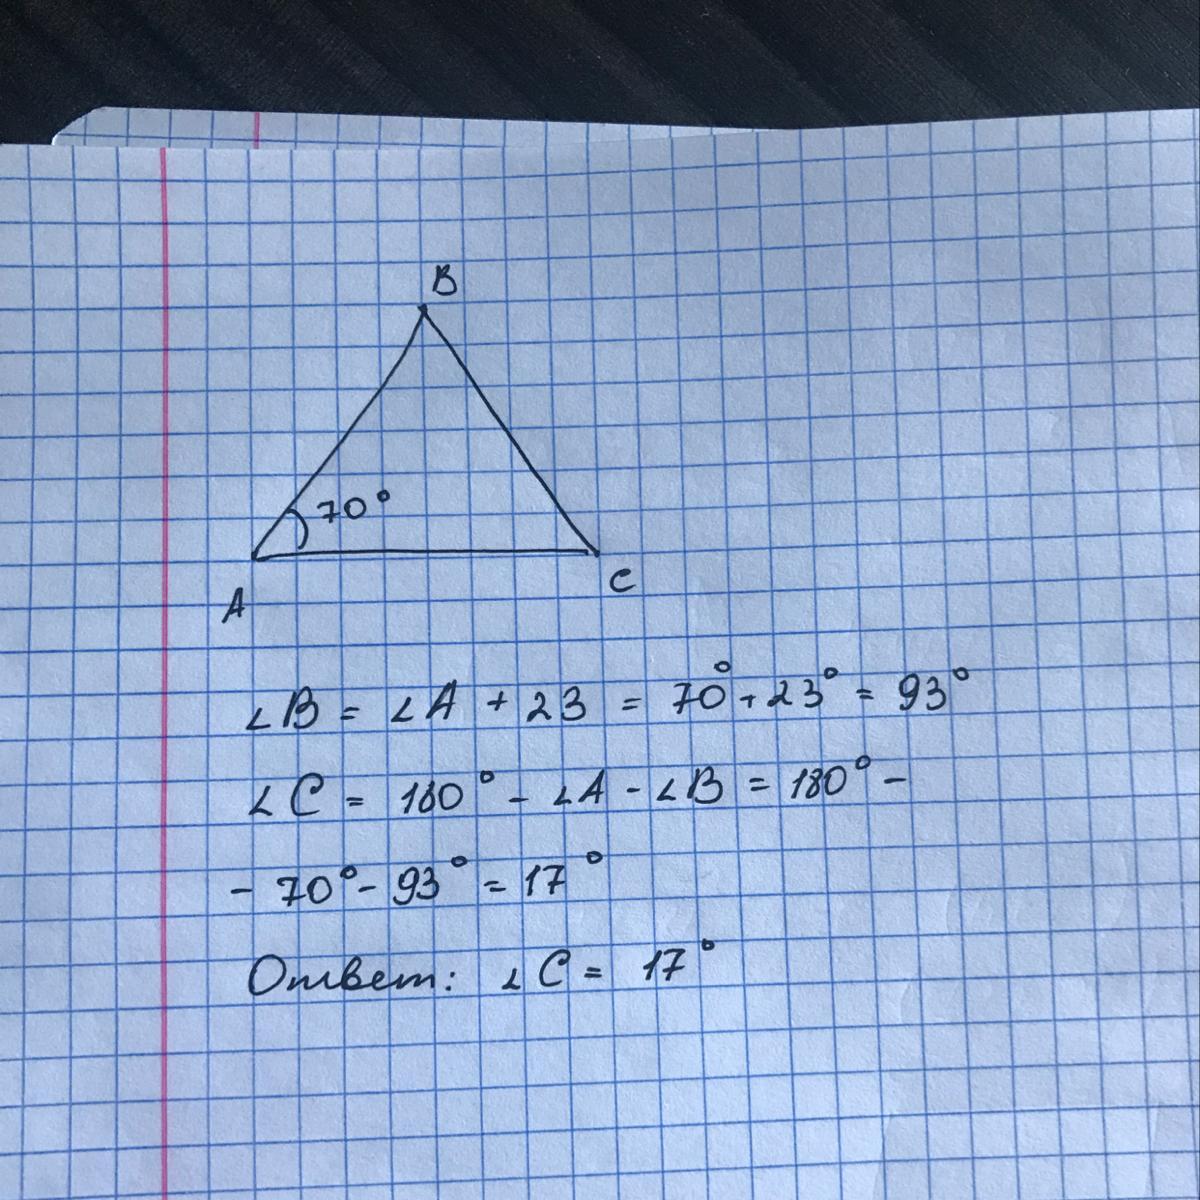 B
70°
A
C
∠B = ∠A + 23 = 70° + 23° = 93°
∠C = 180° - ∠A - ∠B = 180° -
- 70° - 93° = 17°
Ответ: ∠C = 17°